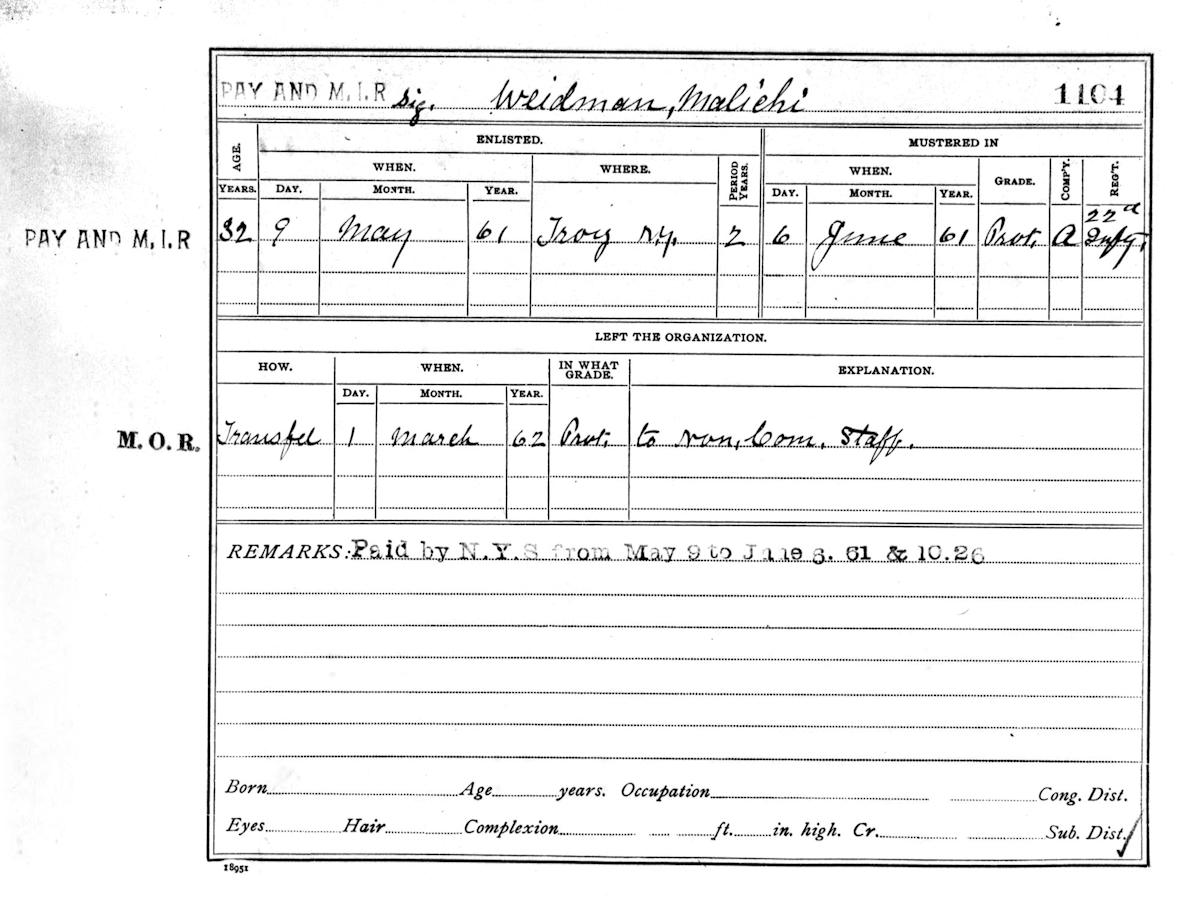 PAY AND M.I.R Sig. Weidman, Malichi 1104
ENLISTED. MUSTERED IN
AGE. WHEN. WHERE. PERIOD YEARS. WHEN. GRADE. COMP'Y. REG'T.
YEARS. DAY. MONTH. YEAR. DAY. MONTH. YEAR.
22d
PAY AND M.I.R 32 9 May 61 Troy N.Y. 2 6 June 61 Prvt. A Infty.
LEFT THE ORGANIZATION.
HOW. WHEN. IN WHAT GRADE. EXPLANATION.
DAY. MONTH. YEAR.
M. O. R. Transfd 1 March 62 Prvt. to Non, Com. Staff.
REMARKS: Paid by N.Y.S from May 9 to June 6. 61 & 10.26
Born Age years. Occupation Cong. Dist.
Eyes Hair Complexion ft. in. high. Cr. Sub. Dist.
18951